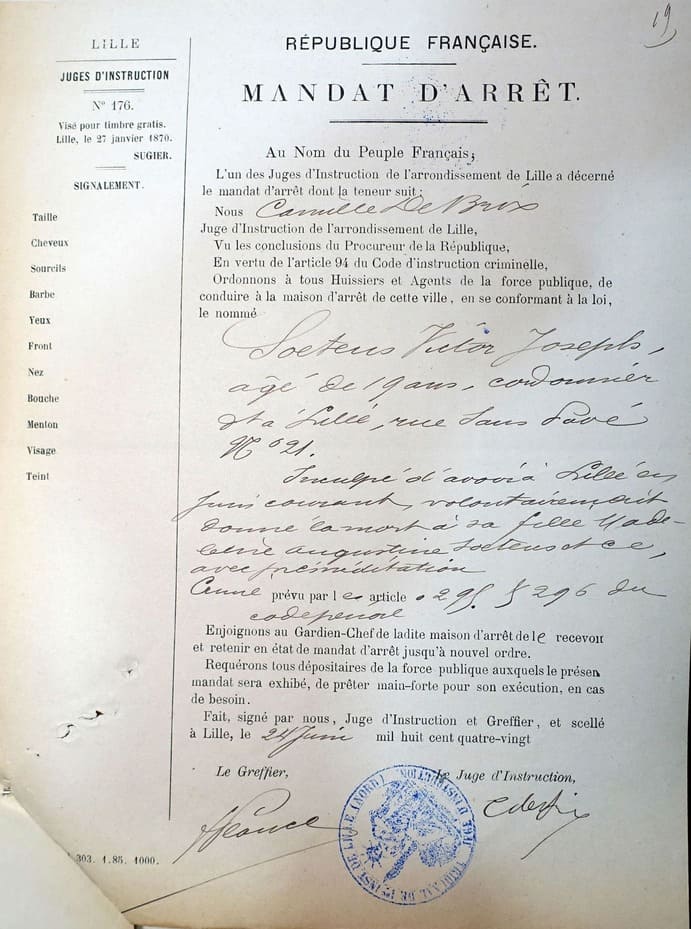 19
LILLE
JUGES D'INSTRUCTION
N° 176.
Visé pour timbre gratis.
Lille, le 27 janvier 1870.
SUGIER.
SIGNALEMENT.
Taille
Cheveux
Sourcils
Barbe
Yeux
Front
Nez
Bouche
Menton
Visage
Teint
303. 1.85. 1000.
RÉPUBLIQUE FRANÇAISE.
MANDAT D'ARRÊT.
Au Nom du Peuple Français;
L'un des Juges d'Instruction de l'arrondissement de Lille a décerné
le mandat d'arrêt dont la teneur suit:
Nous Camille De Brix
Juge d'Instruction de l'arrondissement de Lille,
Vu les conclusions du Procureur de la République,
En vertu de l'article 94 du Code d'instruction criminelle,
Ordonnons à tous Huissiers et Agents de la force publique, de
conduire à la maison d'arrêt de cette ville, en se conformant à la loi,
le nommé
Soetens Victor Joseph,
âgé de 19 ans, cordonnier
à Lille, rue Sans Pavé
N° 21.
Inculpé d'avoir à Lille en
Juin courant, volontairement
donné la mort à sa fille Made-
leine Augustine Soetens et ce,
avec préméditation
Crime prévu par les articles 295 § 296 du
code pénal
Enjoignons au Gardien-Chef de ladite maison d'arrêt de le recevoir
et retenir en état de mandat d'arrêt jusqu'à nouvel ordre.
Requérons tous dépositaires de la force publique auxquels le présen
mandat sera exhibé, de prêter main-forte pour son exécution, en cas
de besoin.
Fait, signé par nous, Juge d'Instruction et Greffier, et scellé
à Lille, le 24 Juin mil huit cent quatre-vingt
Le Greffier, Le Juge d'Instruction,
TRIBUNAL DE 1re INST. DE LILLE (NORD)